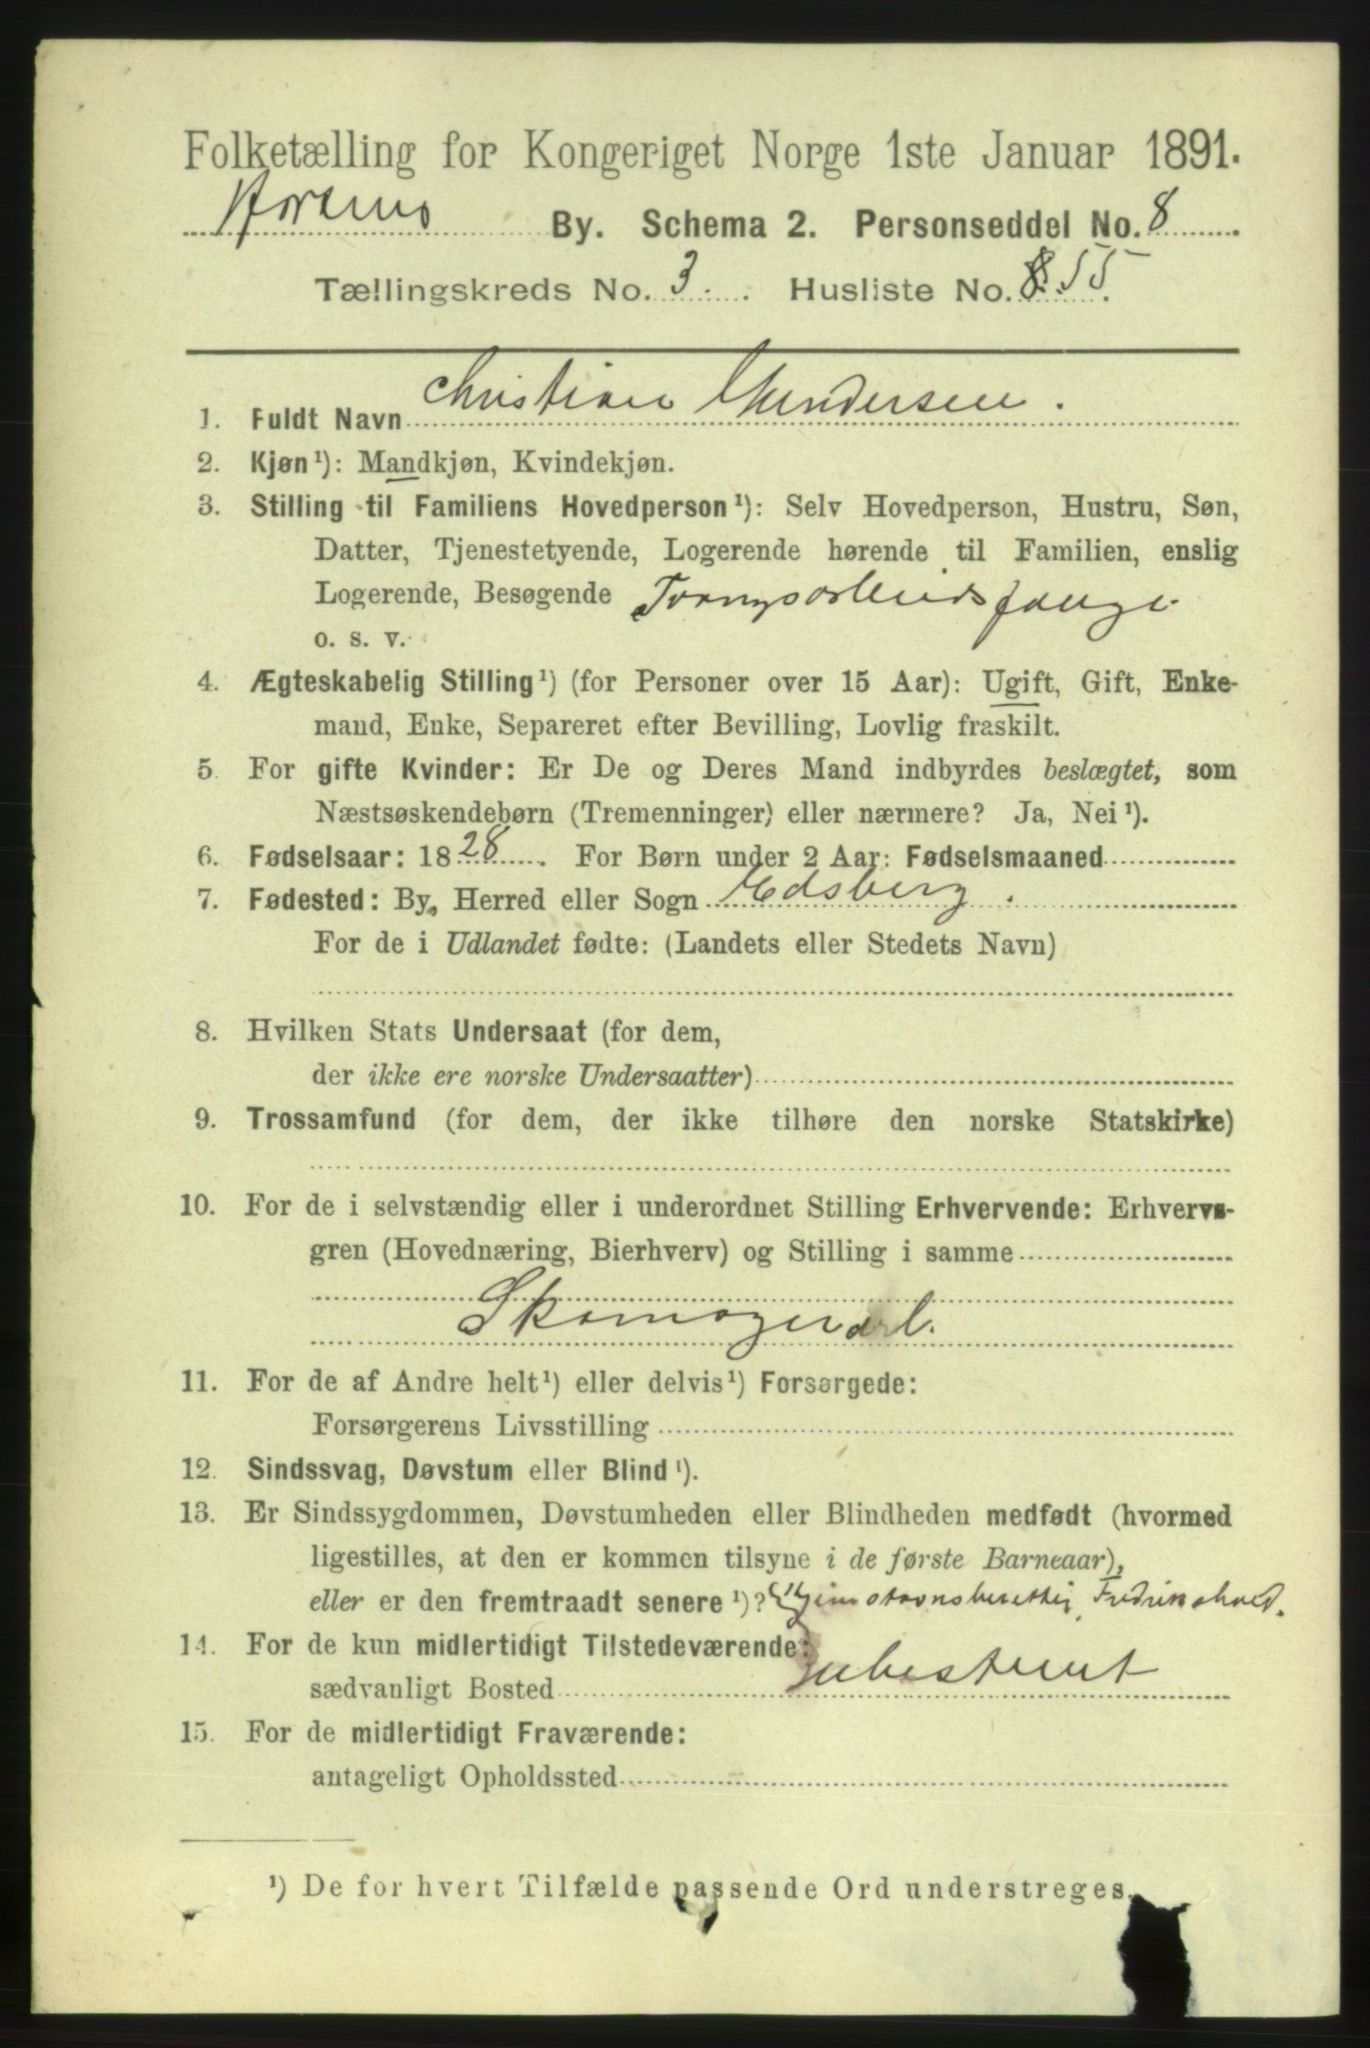 Folketælling for Kongeriget Norge 1ste Januar 1891.
Hortens By. Schema 2. Personseddel No. 8
Tællingskreds No. 3. Husliste No. 8.55.
1. Fuldt Navn Christian Gundersen.
2. Kjøn¹): Mandkjøn, Kvindekjøn.
3. Stilling til Familiens Hovedperson¹): Selv Hovedperson, Hustru, Søn,
Datter, Tjenestetyende, Logerende hørende til Familien, enslig
Logerende, Besøgende Tvangsarbeidsfange.
o. s. v.
4. Ægteskabelig Stilling¹) (for Personer over 15 Aar): Ugift, Gift, Enke-
mand, Enke, Separeret efter Bevilling, Lovlig fraskilt.
5. For gifte Kvinder: Er De og Deres Mand indbyrdes beslægtet, som
Næstsøskendebørn (Tremenninger) eller nærmere? Ja, Nei¹).
6. Fødselsaar: 1828. For Børn under 2 Aar: Fødselsmaaned
7. Fødested: By, Herred eller Sogn Edsberg.
For de i Udlandet fødte: (Landets eller Stedets Navn)
8. Hvilken Stats Undersaat (for dem,
der ikke ere norske Undersaatter)
9. Trossamfund (for dem, der ikke tilhøre den norske Statskirke)
10. For de i selvstændig eller i underordnet Stilling Erhvervende: Erhvervs-
gren (Hovednæring, Bierhverv) og Stilling i samme
Skomagerarb.
11. For de af Andre helt¹) eller delvis¹) Forsørgede:
Forsørgerens Livsstilling
12. Sindssvag, Døvstum eller Blind¹).
13. Er Sindssygdommen, Døvstumheden eller Blindheden medfødt (hvormed
ligestilles, at den er kommen tilsyne i de første Barneaar),
eller er den fremtraadt senere¹)? Hjemstavnsberettig. Fredrikshald.
14. For de kun midlertidigt Tilstedeværende:
sædvanligt Bosted ubestemt
15. For de midlertidigt Fraværende:
antageligt Opholdssted
¹) De for hvert Tilfælde passende Ord understreges.